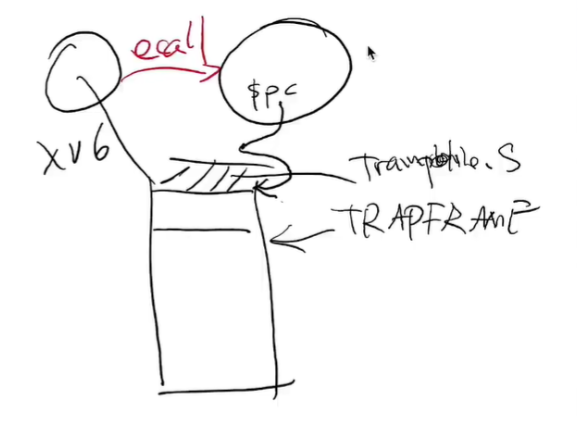 ecall
$pc
xv6
Trampoline.S
TRAPFRAME